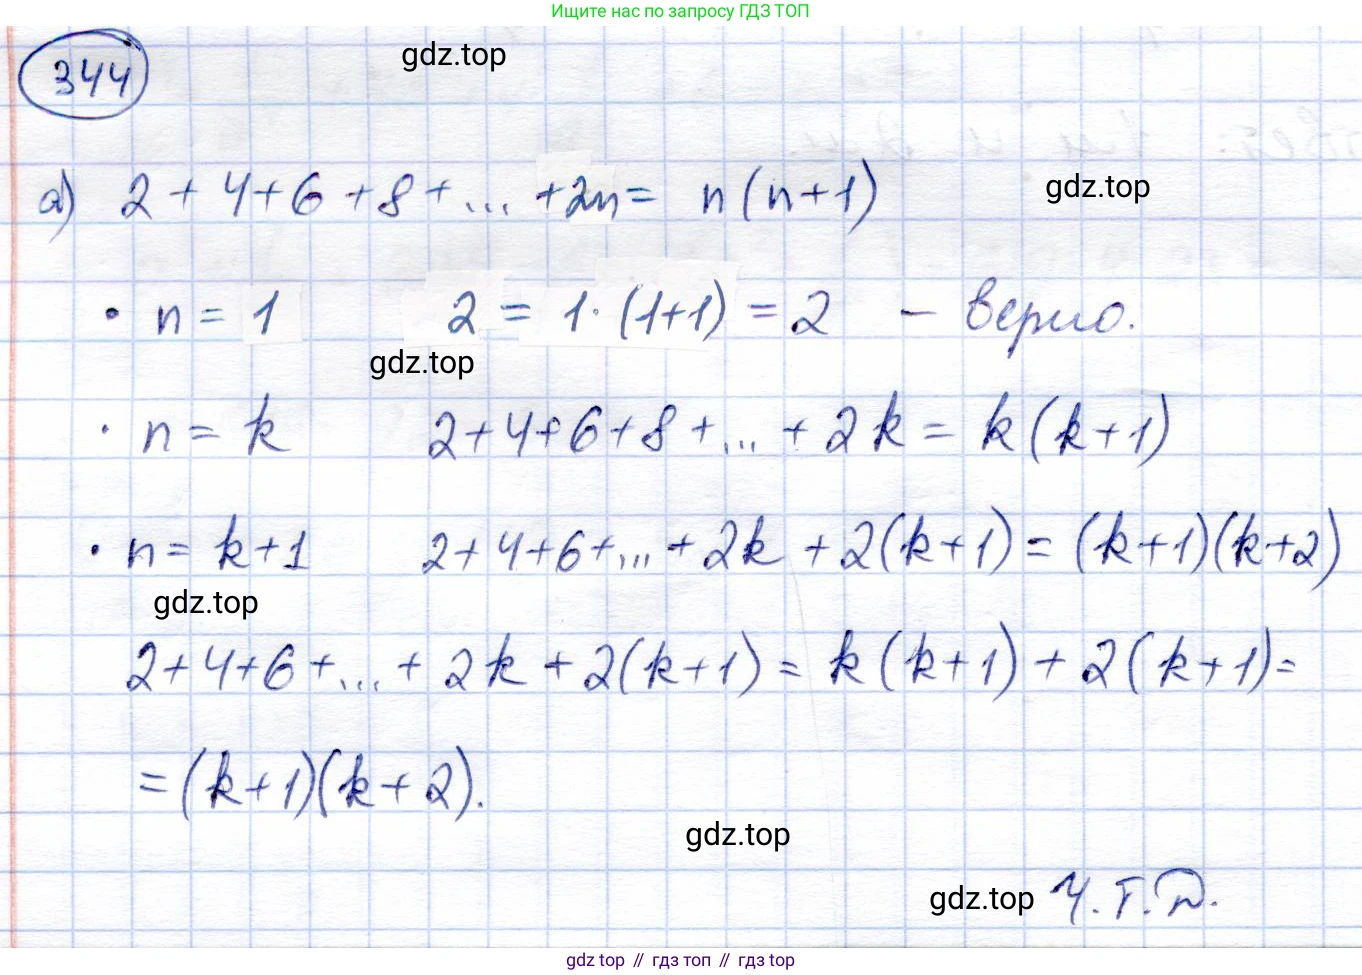 Ищите нас по запросу ГДЗ ТОП
344
gdz.top
а) 2 + 4 + 6 + 8 + ... + 2n = n(n+1)
gdz.top
· n = 1 2 = 1·(1+1) = 2 – верно.
gdz.top
· n = k 2+4+6+8+...+2k = k(k+1)
· n = k+1 2+4+6+...+2k+2(k+1) = (k+1)(k+2)
gdz.top
2+4+6+...+2k+2(k+1) = k(k+1)+2(k+1) =
= (k+1)(k+2).
gdz.top
gdz.top
Ч.Т.Д.
gdz top // гдз топ // гдз top